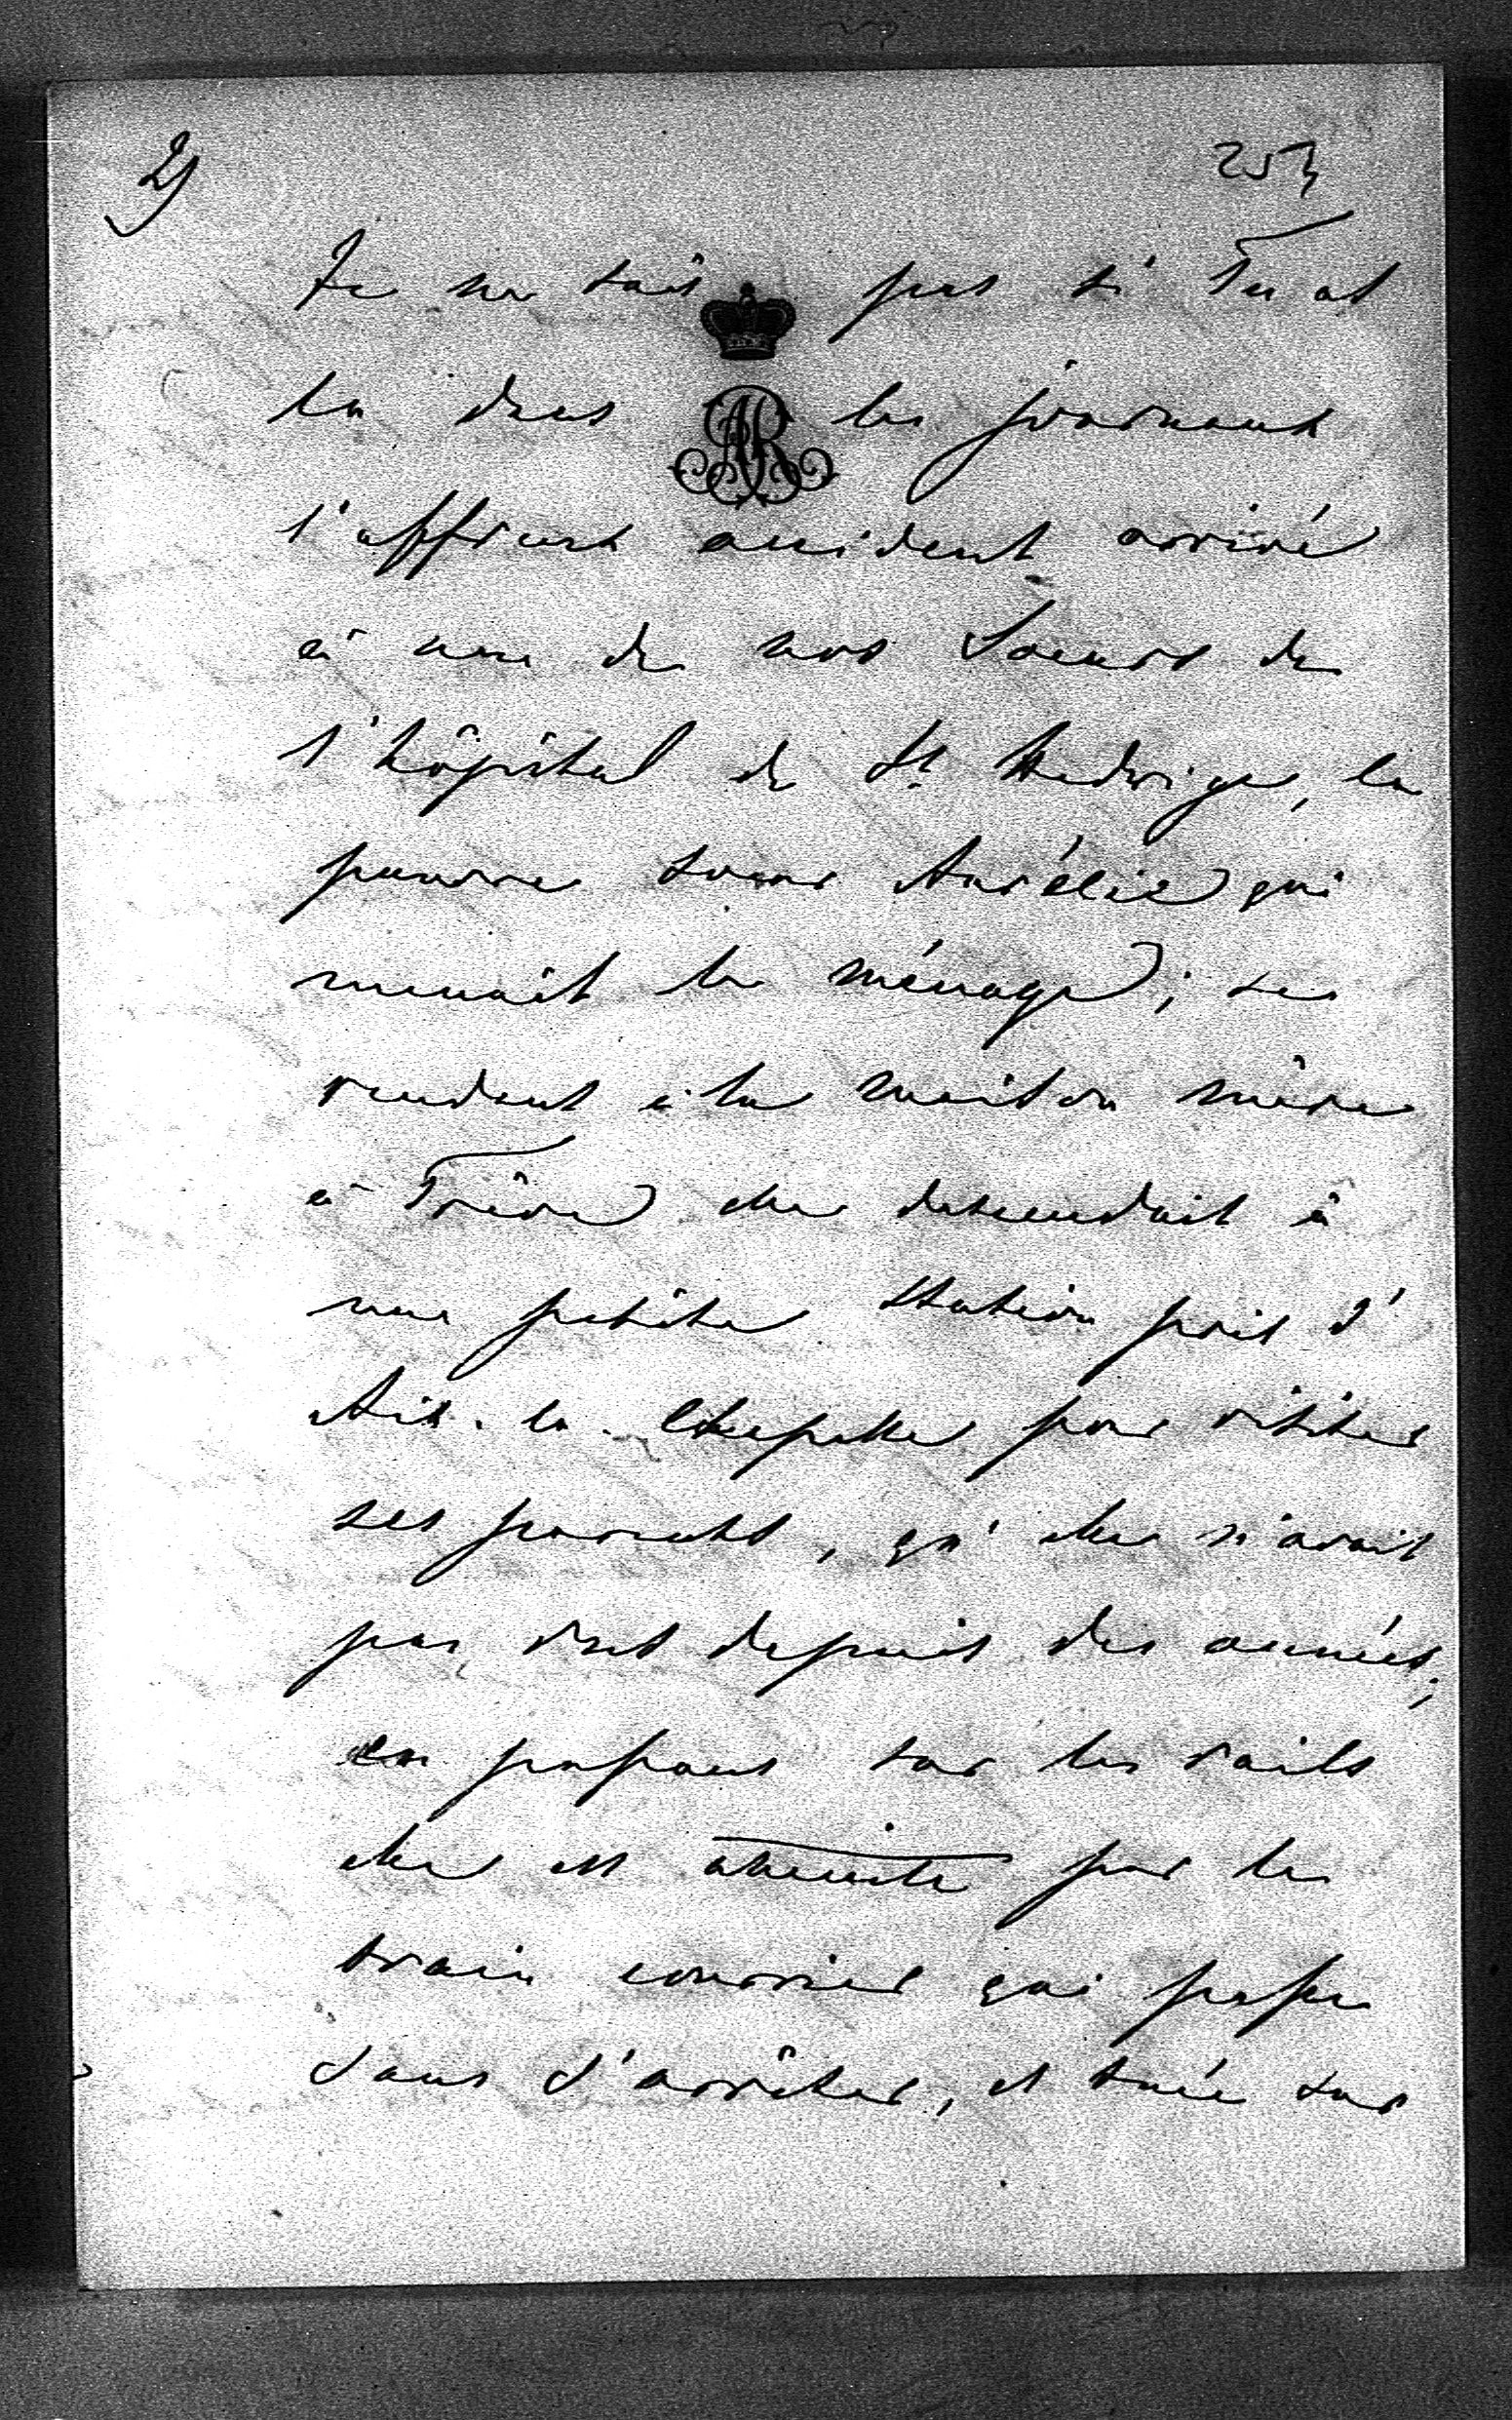 2) 253
Je ne sais pas si Tu as
lu dans les journaux
AR
l'affreux accident arrivé
à une de nos Soeurs de
l'hôpital de St. Hedwige, la
pauvre soeur Aurélie qui
menait le ménage; se
rendant à la maison mère
à Trève elle descendait à
une petite station près d'
Aix-la-Chapelle pour visiter
ses parents, qu'elle n'avait
pas vus depuis des années;
en passant sur les rails
elle est atteinte par le
train courrier qui passe
sans s'arrêter, et tuée sur